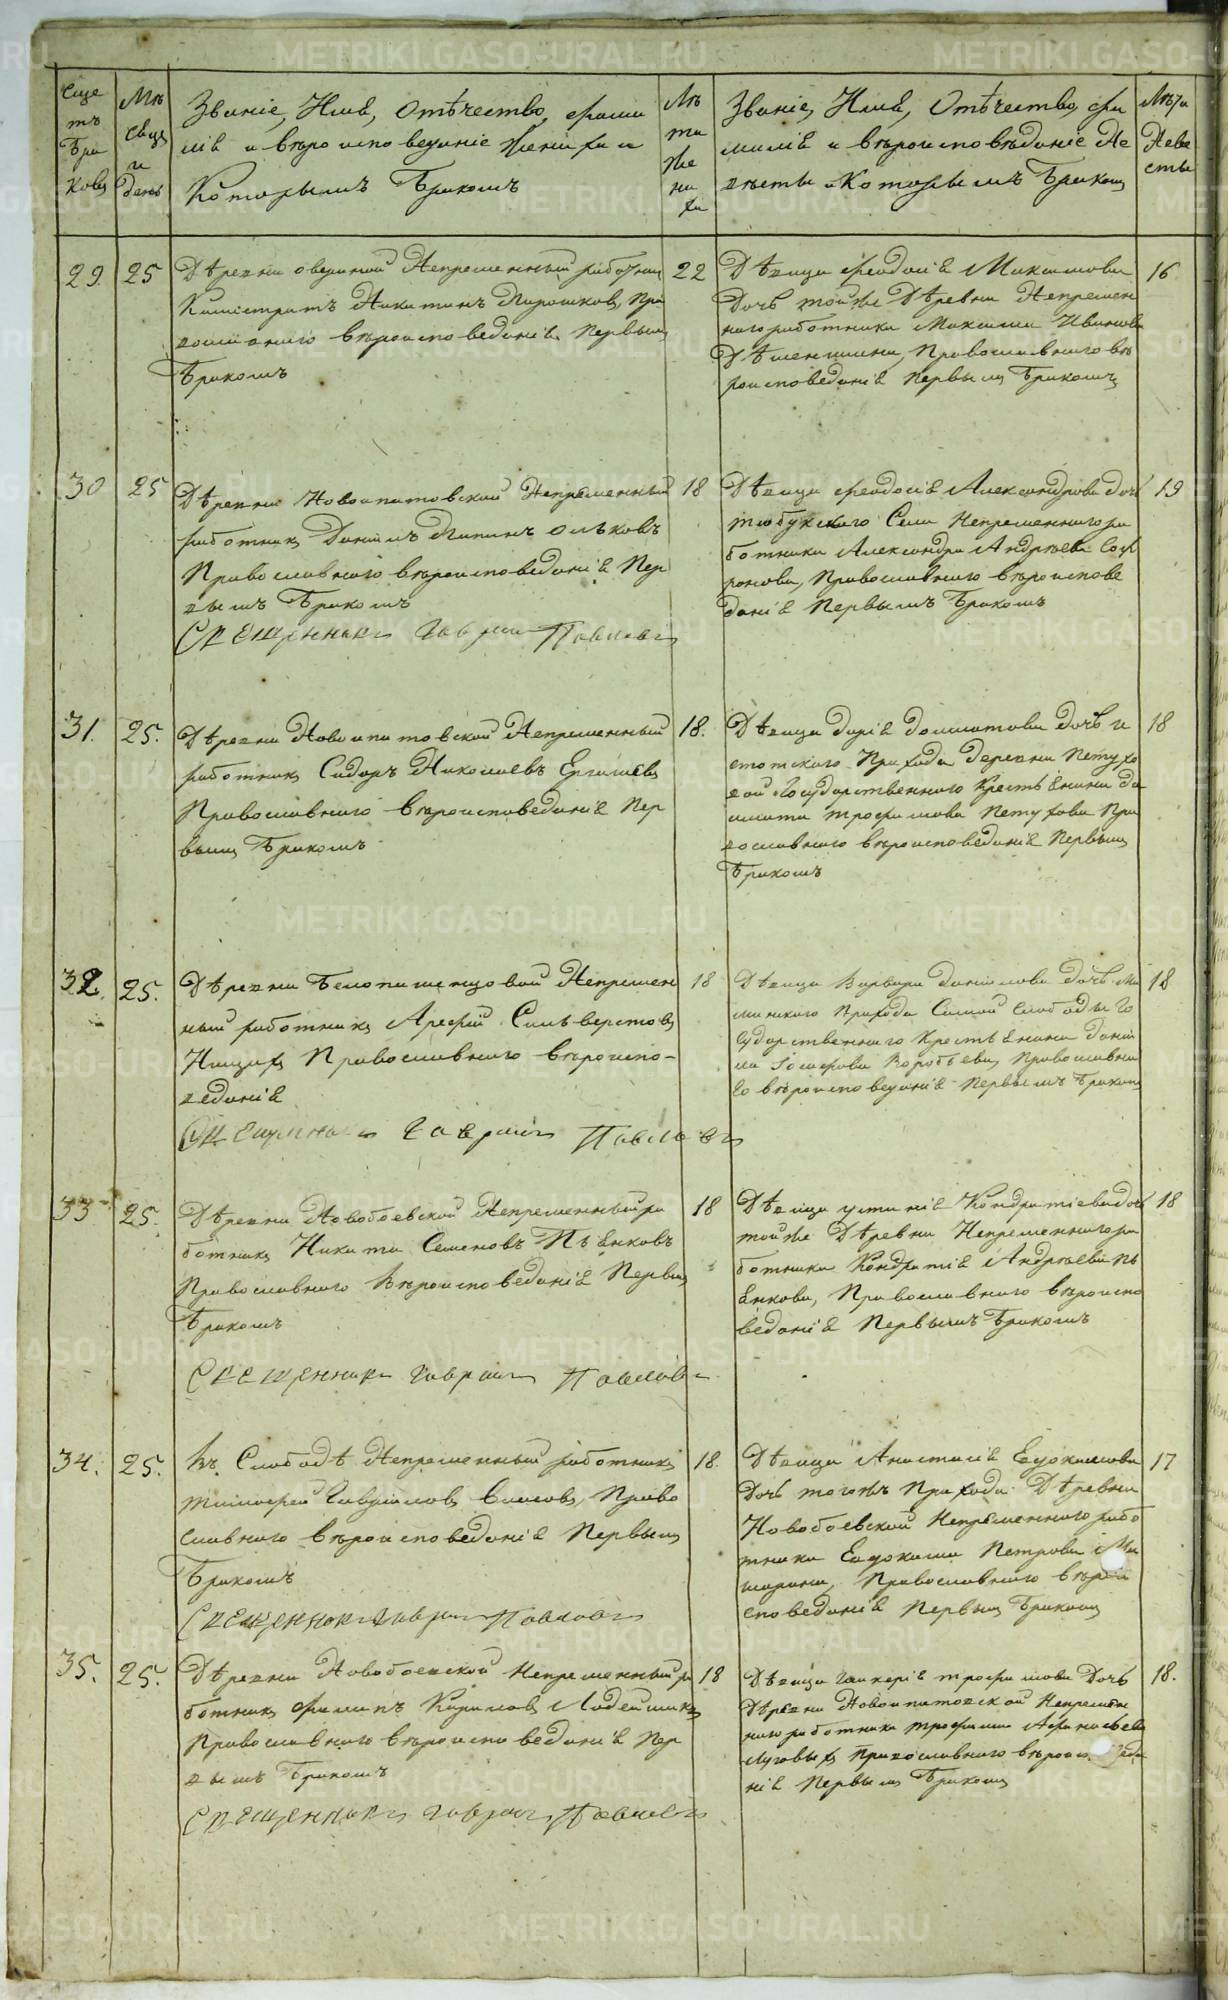 Счетъ браковъ
Мѣсяцъ и день
Званіе, Имя, Отѣчество, фами
лія и вѣроисповеданіе жениха и
Которымъ бракомъ
Лѣта жениха
Званіе, Имя, Отѣчество, фа
милія и вѣроисповѣданіе Не
вѣсты и Которымъ бракомъ
Лѣта Невесты
29.
25
Дѣревни Непременный работник
Калистратъ Никитинъ Пирожков, Пра
вославнаго вѣроисповеданія Первым
бракомъ
22
Дѣвица феодосія Максимова
Дочь той же Дѣревни Непремен
наго работника Максима Иванова
Православнаго вѣ
роисповеданія Первым бракомъ
16
30
25
Дѣревни Новоипатовской Непременный
работник Данилъ Ольковъ
Православнаго вѣроисповеданія Пер
вымъ бракомъ
Священникъ Гаврил Павловъ
18
Дѣвица феодосія Александрова дочь
Тюбукского Села Непременнаго ра
ботника Александра Андрѣева Соф
ронова, Православнаго вѣроиспове
данія Первымъ бракомъ
19
31.
25.
Дѣревни Новоипатовской Непременный
работник Сидоръ Николаевъ
Православнаго вѣроисповеданія Пер
вым бракомъ
18.
Дѣвица Дарія Далматова дочь и
стокского Прихода деревни Петухо
вой Государственнаго Крестьянина Да
лмата трофимова Петухова Пра
вославнаго вѣроисповеданія Первым
бракомъ
18
32.
25.
Дѣревни Непремен
ный работник Арефий Сильверстов
Православнаго вѣроиспо-
веданія
Священникъ Гаврилъ Павловъ
18
Дѣвица Варвара Данилова дочь
Прихода Самой Слободы Го
сударственнаго Крестьянина Дани
ла Воробьева, Православна
го вѣроисповеданія Первымъ бракомъ
18
33
25.
Дѣревни Новобоевской Непременный ра
ботник Никита Семеновъ Пьянковъ
Православнаго Вѣроисповеданія Первым
бракомъ
Священникъ Гаврилъ Павловъ
18
Дѣвица устинія Кондратіева дочь
той же Дѣревни Непременнаго ра
ботника Кондратія Андрѣева Пь
янкова, Православнаго вѣроиспо
веданія Первымъ бракомъ
18
34.
25.
Въ Слободѣ Непременный работник
тимофей Гаврилов Власов, Право
славнаго вѣроисповеданія Первым
бракомъ
Священникъ Гаврил Павловъ
18.
Дѣвица Анастасія Евдокимова
дочь того жъ Прихода Дѣревни
Новобоевской Непременнаго рабо
тника Евдокима Петрова
Православнаго вѣрои
споведанія Первым браком
17
35.
25.
Дѣревни Новобоевской Непременный ра
ботник филипъ Карпов Ладейщиков
Православнаго вѣроисповеданія Пер
вымъ бракомъ
Священникъ Гаврил Павловъ
18
Дѣвица Гликерія трофимова Дочь
Дѣревни Новоипатовской Непремен
наго работника трофима Афанасьева
Луговых Православнаго вѣроисповеда
нія Первым бракомъ
18.
METRIKI.GASO-URAL.RU